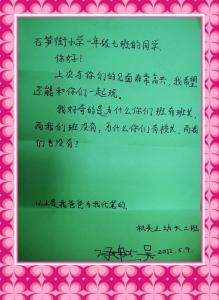 石笋街小学一年级七班的同学：
你好！
上次与你们的见面非常高兴，我希望
还能和你们一起玩。
我好奇的是为什么你们班有班长，
而我们班没有，为什么你们有校长，而我
们也没有？
以上是我爸爸为我代笔的。
机关三幼大二班
2012.5.9.